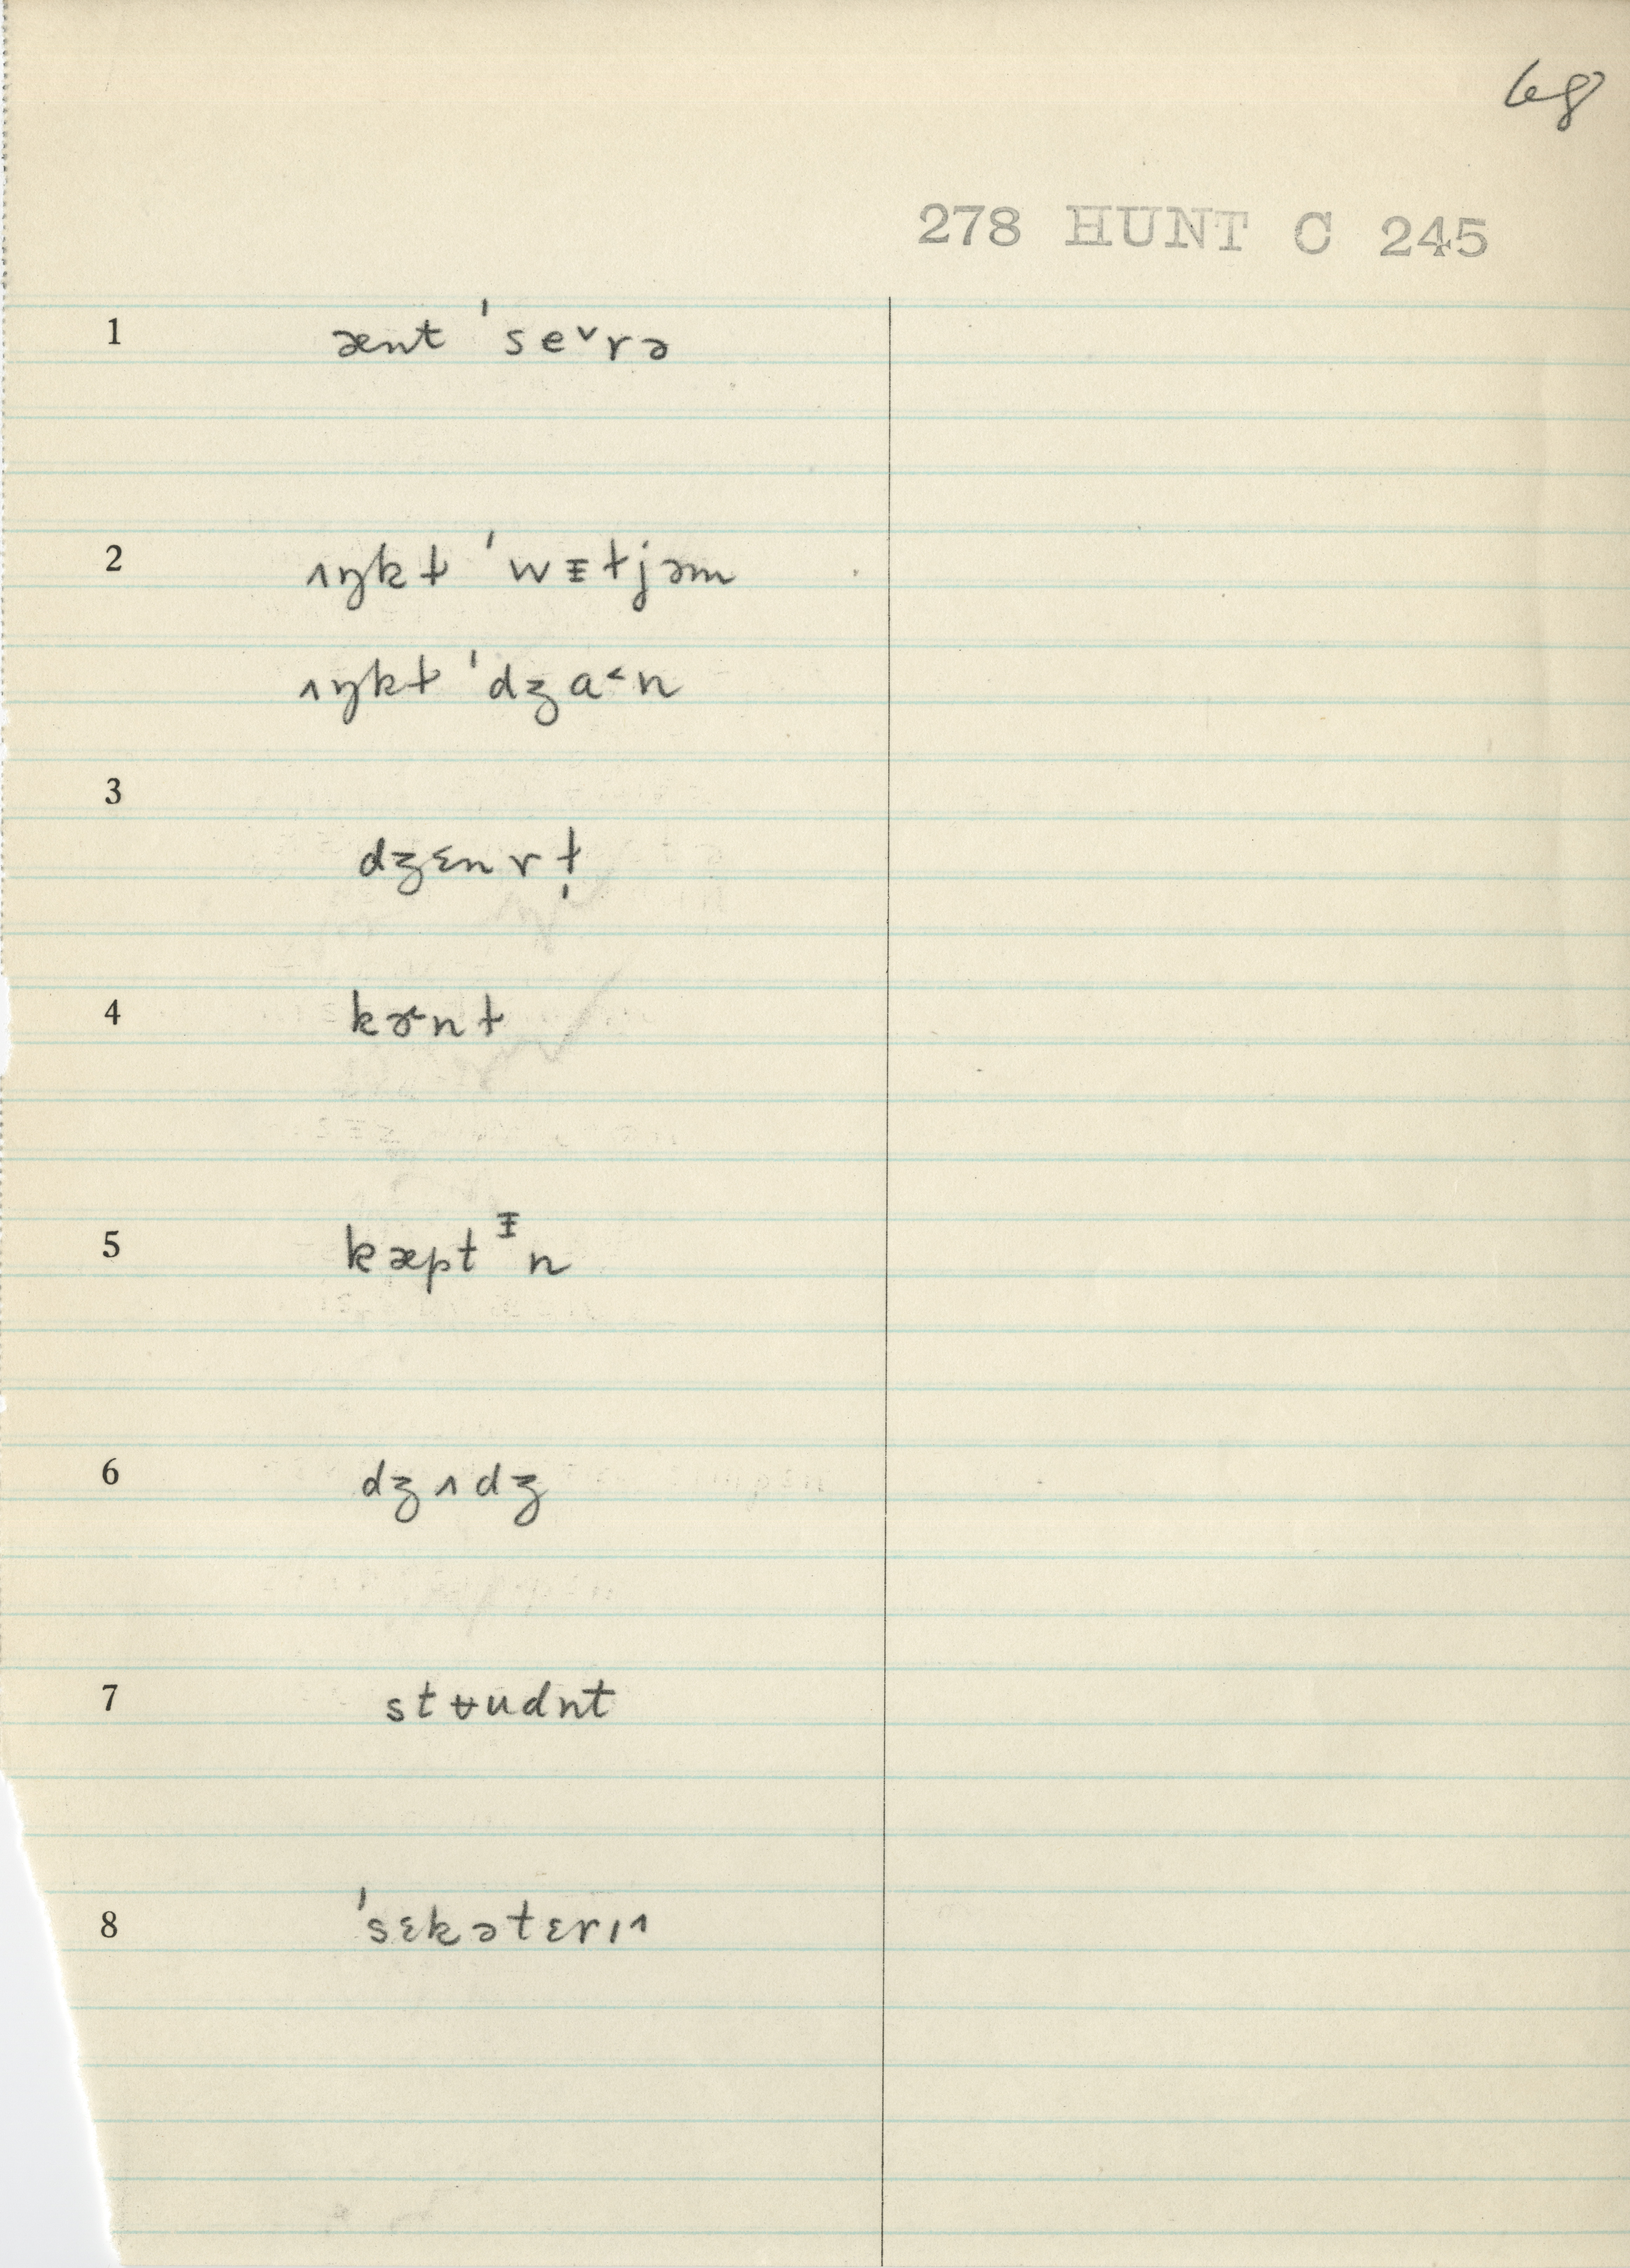 68
278 HUNT C 245
1 ænt ˈse˅rə
2 ʌŋkɫ ˈwᵻɫjəm
ʌŋkɫ ˈdʒa˂n
3 dʒɛnrɫ̩
4 kɝnɫ
5 kæptᵻn
6 dʒʌdʒ
7 stʉudnt
8 ˈsɛkətɛrɪ˄